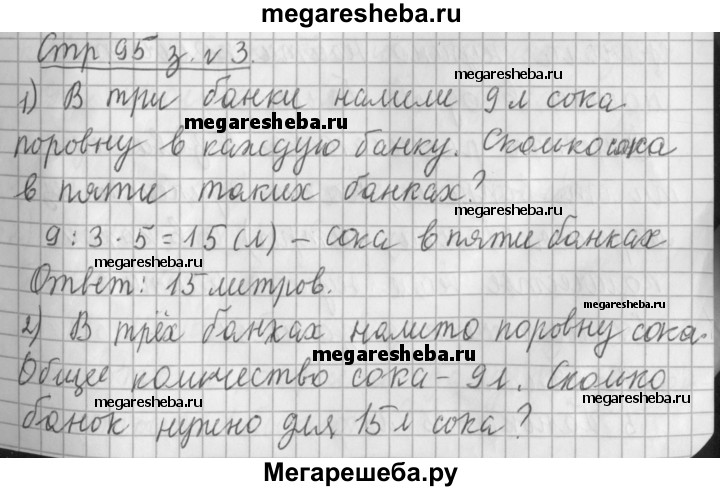 megaresheba.ru
Стр 95 з. № 3.
megaresheba.ru
1) В три банки налили 9 л сока
megaresheba.ru
поровну в каждую банку. Сколько сока
в пяти таких банках?
megaresheba.ru
9 : 3 · 5 = 15 (л) – сока в пяти банках
megaresheba.ru
Ответ: 15 литров.
megaresheba.ru
2) В трёх банках налито поровну сока.
megaresheba.ru
Общее количество сока – 9 л. Сколько
megaresheba.ru megaresheba.ru
банок нужно для 15 л сока?
Мегарешеба.ру